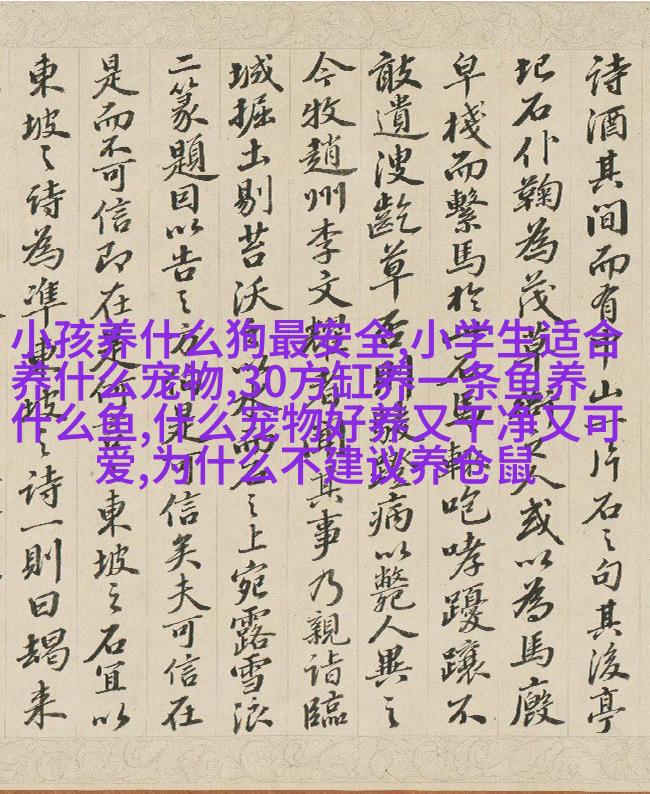 詩酒其間而有中山片石之句其後亭
圮石仆鞠為茂草又或以為馬廄
皁棧而繫馬於石馬輒咆哮躩躟不
敢遺溲齕草否則敲蹬病以斃人異之
今牧趙州李文耀者聞其事乃親詣臨
城掘土剔苔沃之上宛露雪浪
二篆題因以告之方是可信矣夫可信在
是而不可信即在是東坡之石宜以
東坡之詩為準東坡之詩一則曰朅来
小孩养什么狗最安全,小学生适合
养什么宠物,30方缸养一条鱼养
什么鱼,什么宠物好养又干净又可
爱,为什么不建议养仓鼠